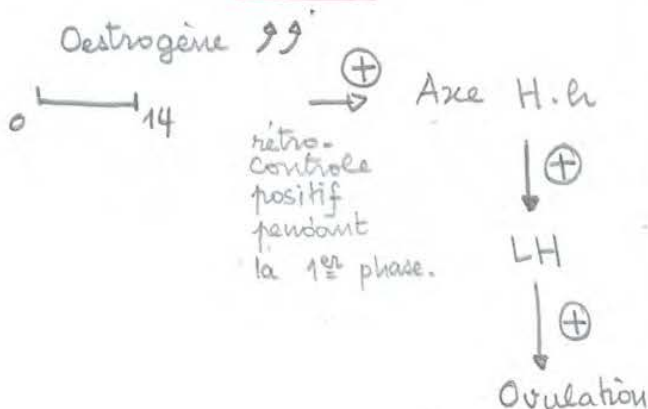 Oestrogène
⊕
Axe H.h
0 14
rétro-
controle
positif
pendant
la 1er phase.
⊕
LH
⊕
Ovulation